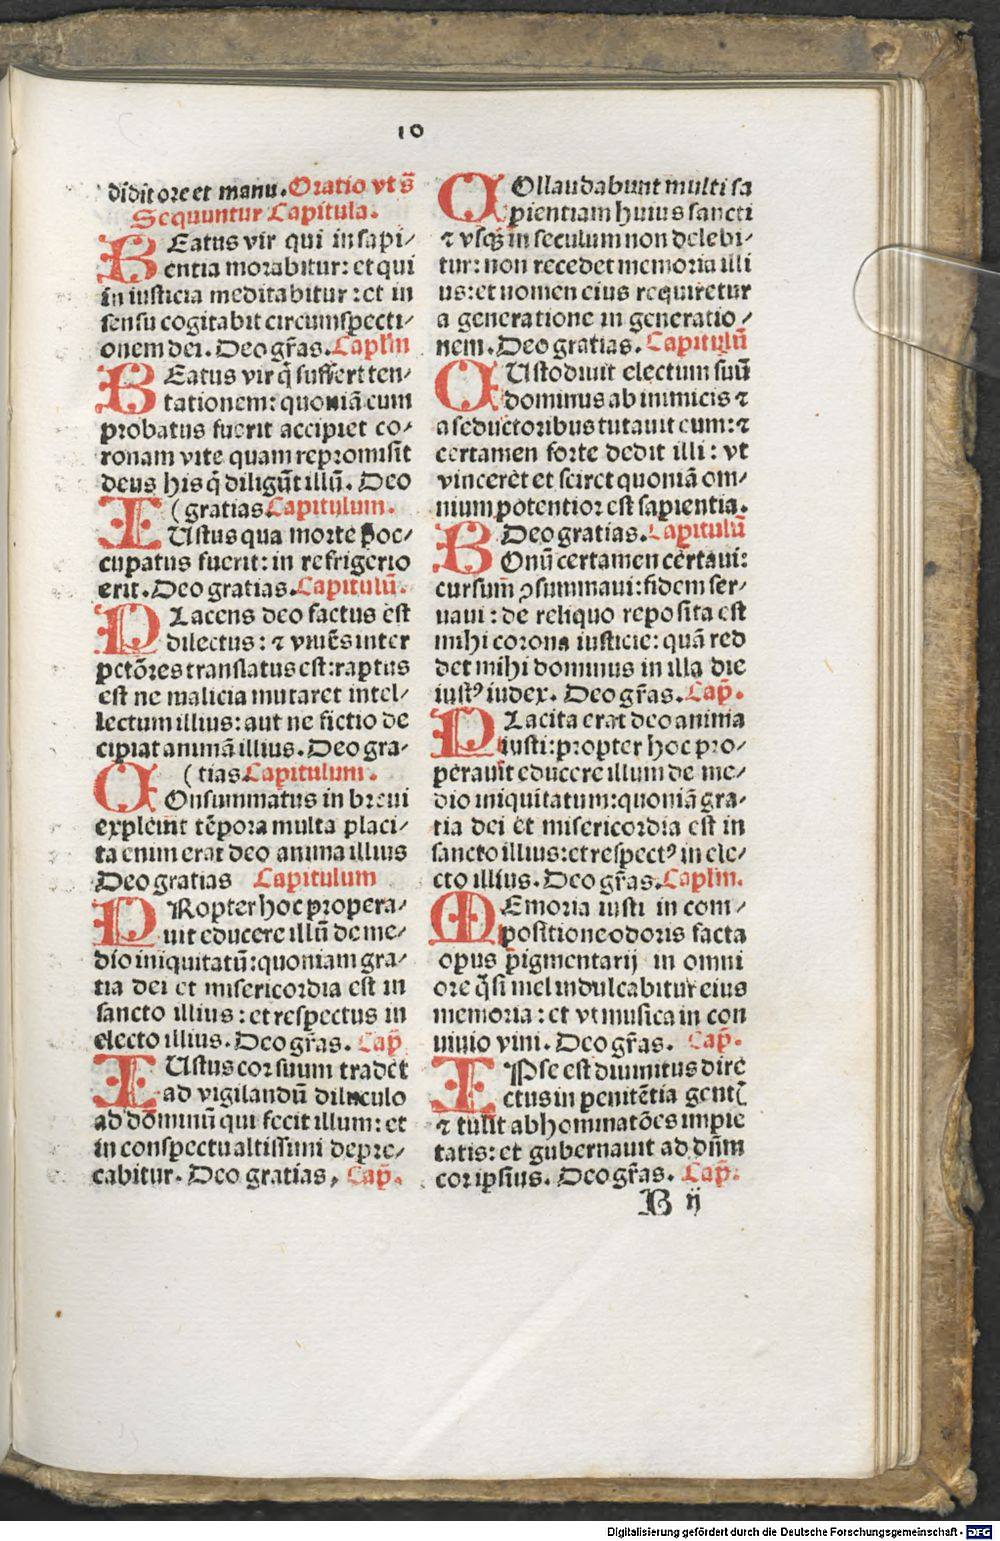 10
didit ore et manu. Oratio vt s̄
Sequuntur Capitula.
BEatus vir qui in sapi/
entia morabitur: et qui
in iusticia meditabitur: et in
sensu cogitabit circumspecti/
onem dei. Deo gr̄as. Caplm̄
BEatus vir q̄ suffert ten/
tationem: quoniā cum
probatus fuerit accipiet co/
ronam vite quam repromisit
deus his q̄ diligūt illū. Deo
(gratias. Capitulum.
IUstus qua morte p̄oc/
cupatus fuerit: in refrigerio
erit. Deo gratias. Capitulū.
PLacens deo factus est
dilectus: ⁊ viuēs inter
pctōres translatus est: raptus
est ne malicia mutaret intel/
lectum illius: aut ne fictio de
cipiat animā illius. Deo gra-
(tias. Capitulum.
COnsummatus in breui
expleuit tēpora multa placi/
ta enim erat deo anima illius
Deo gratias Capitulum
PRopter hoc propera/
uit educere illū de me/
dio iniquitatū: quoniam gra/
tia dei et misericordia est in
sancto illius: et respectus in
electo illius. Deo gr̄as. Cap̄
IUstus cor suum tradet
ad vigilandū diluculo
ad dominū qui fecit illum: et
in conspectu altissimi depre/
cabitur. Deo gratias, Cap̄.
COllaudabunt multi sa
pientiam huius sancti
⁊ vsq̄ in seculum non delebi/
tur: non recedet memoria illi
us: et nomen eius requiretur
a generatione in generatio/
nem. Deo gratias. Capitulū
CUstodiuit electum suū
dominus ab inimicis ⁊
a seductoribus tutauit eum: ⁊
certamen forte dedit illi: vt
vinceret et sciret quoniā om-
nium potentior est sapientia.
Deo gratias. Capitulū
BOnū certamen certaui:
cursum̄ ꝯsummaui: fidem ser-
uaui: de reliquo reposita est
mihi corona iusticie: quā red
det mihi dominus in illa die
iustꝰ iudex. Deo gr̄as. Cap̄.
PLacita erat deo anima
iusti: propter hoc pro/
perauit educere illum de me/
dio iniquitatum: quoniā gra/
tia dei et misericordia est in
sancto illius: et respectꝰ in ele/
cto illius. Deo gr̄as. Caplm̄.
MEmoria iusti in com/
positione odoris facta
opus pigmentarij in omni
ore q̄si mel indulcabitur eius
memoria: et vt musica in con
uiuio vini. Deo gr̄as. Cap̄.
IPse est diuinitus dire
ctus in penitētia gentꝭ
⁊ tulit abhominatōes impie
tatis: et gubernauit ad dn̄m
cor ipsius. Deo gr̄as. Cap̄.
B ij
Digitalisierung gefördert durch die Deutsche Forschungsgemeinschaft - DFG